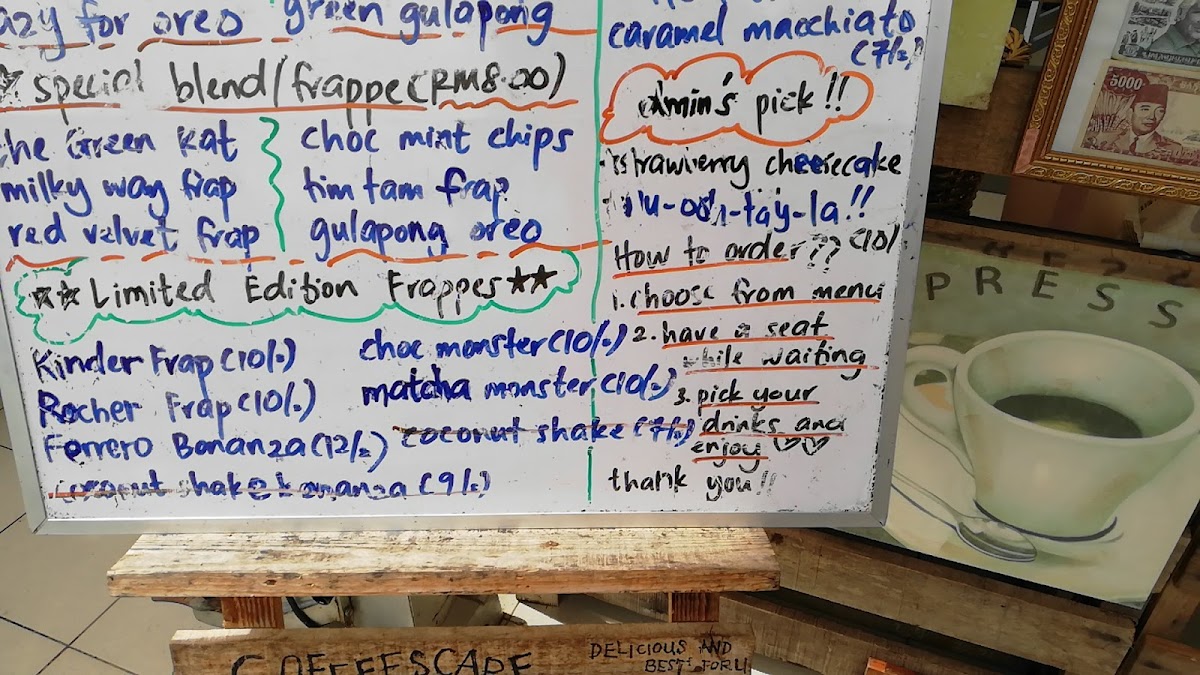 for oreo green gulapong
special blend/frappe (RM8.00)
the Green Kat
milky way frap
red velvet frap
choc mint chips
tim tam frap
gulapong oreo
★★ Limited Edition Frappes ★★
Kinder Frap (10/=)
Rocher Frap (10/=)
Ferrero Bonanza (12/=)
coconut shake bonanza (9/=)
choc monster (10/=)
matcha monster (10/=)
coconut shake (7/=)
caramel macchiato
(7/=)
dmin's pick!!
strawberry cheesecake
How to order?? (10/
1. choose from menu
2. have a seat
while waiting
3. pick your
drinks and
enjoy ♡♡
thank you!!
5000
PRESS
COFFEESCAPE
DELICIOUS AND
BEST FOR